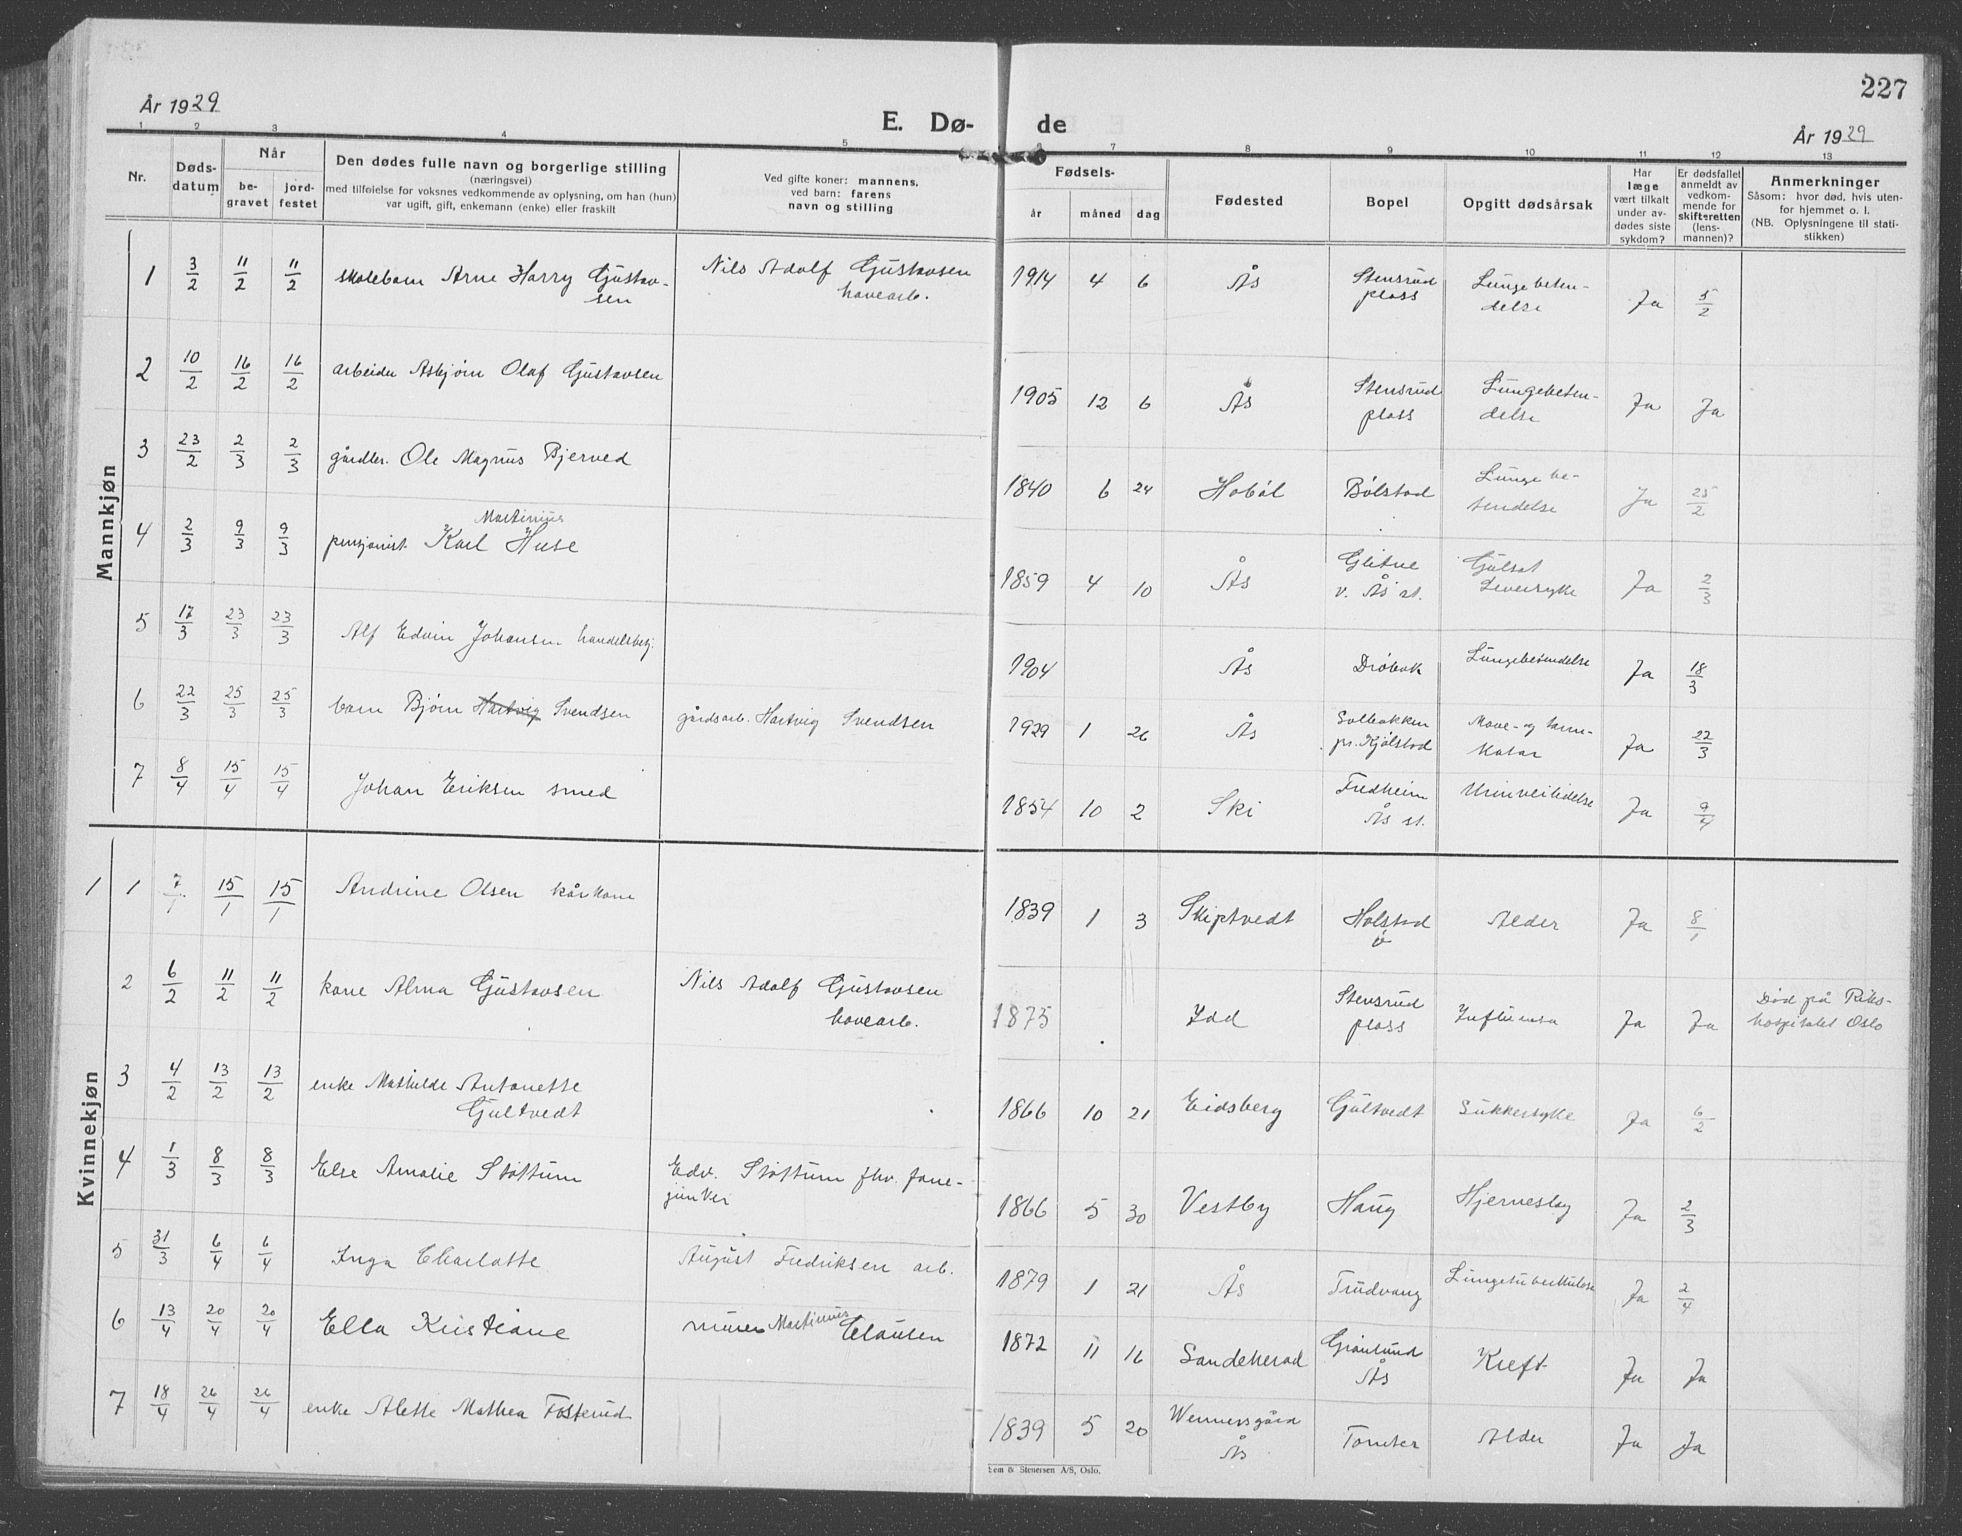 227
År 1929
E. Dø- de
År 1929
1 2 3 4 5 6 7 8 9 10 11 12 13
Nr.
Døds-
datum
Når
be-
gravet
jord-
festet
Den dødes fulle navn og borgerlige stilling
(næringsvei)
med tilføielse for voksnes vedkommende av oplysning, om han (hun)
var ugift, gift, enkemann (enke) eller fraskilt
Ved gifte koner: mannens,
ved barn: farens
navn og stilling
Fødsels-
år
måned
dag
Fødested
Bopel
Opgitt dødsårsak
Har
læge
vært tilkalt
under av-
dødes siste
sykdom?
Er dødsfallet
anmeldt av
vedkom-
mende for
skifteretten
(lens-
mannen)?
Anmerkninger
Såsom: hvor død, hvis uten-
for hjemmet o. l.
(NB. Oplysningene til stati-
stikken)
Mannkjøn
1 3/2 11/2 11/2 skolebarn Arne Harry Gustav-
sen
Nils Adolf Gustavsen
havearb.
1914 4 6 Ås Stensrud
plass
Lungebeten-
delse
Ja 5/2
2 10/2 16/2 16/2 arbeider Asbjørn Olaf Gustavsen
1905 12 6 Ås Stensrud
plass
Lungebeten-
delse
Ja Ja
3 23/2 2/3 2/3 gårdbr. Ole Magnus Bjerved
1840 6 24 Hobøl Bølstad Lunge be-
tendelse
Ja 25/2
4 2/3 9/3 9/3 pensjonist Karl Martinius Huse
1859 4 10 Ås Glitne
v. Ås st.
Gulsot
Leversyke
Ja 2/3
5 17/3 23/3 23/3 Alf Edvin Johansen handelsbetj.
1904 Ås Drøbak Lungebetendelse Ja 18/3
6 22/3 25/3 25/3 barn Bjørn Hartvig Svendsen
gårdsarb. Hartvig Svendsen
1929 1 26 Ås Solbakken
pr. Kjølstad
Mave- og tarm-
katar
Ja 22/3
7 8/4 15/4 15/4 Johan Eriksen smed
1854 10 2 Ski Fredheim
Ås st.
Urinveilidelse Ja 9/4
Kvinnekjøn
1 1 7/1 15/1 15/1 Andrine Olsen kårkone
1839 1 3 Skiptvedt Holstad
ø
Alder Ja 8/1
2 6/2 11/2 11/2 kone Alma Gustavsen
Nils Adolf Gustavsen
havearb.
1875 Idd Stensrud
plass
Influensa Ja Ja
Død på Riks-
hospitalet Oslo
3 4/2 13/2 13/2 enke Mathilde Antonette
Gultvedt
1866 10 21 Eidsberg Gultvedt Sukkersyke Ja 6/2
4 1/3 8/3 8/3 Else Amalie Støttum
Edv. Støttum fhv. fane-
junker
1866 5 30 Vestby Haug Hjerneslag Ja 2/3
5 31/3 6/4 6/4 Inga Charlotte
August Fredriksen arb.
1879 1 21 Ås Trudvang Lungetuberkulose Ja 2/4
6 13/4 20/4 20/4 Ella Kristiane
murer Martinius Clausen
1872 11 16 Sandeherad Grønlund
Ås
Kreft Ja Ja
7 18/4 26/4 26/4 enke Alette Mathea Fosterud
1839 5 20 Wennersgård
Ås
Tomter Alder Ja Ja
Sem & Stenersen A/S, Oslo.